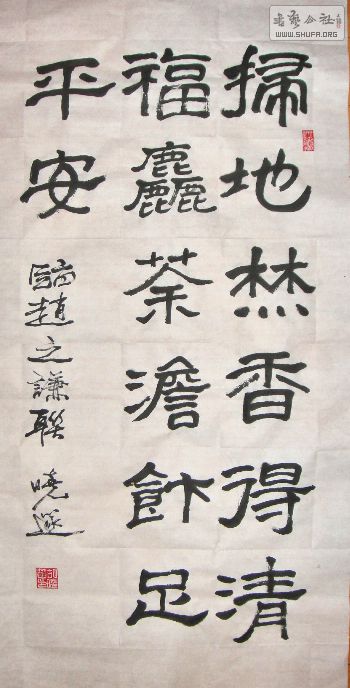 掃地焚香得清
福麤茶澹飰足
平安
臨趙之謙聯 曉
书艺公社
WWW.SHUFA.ORG